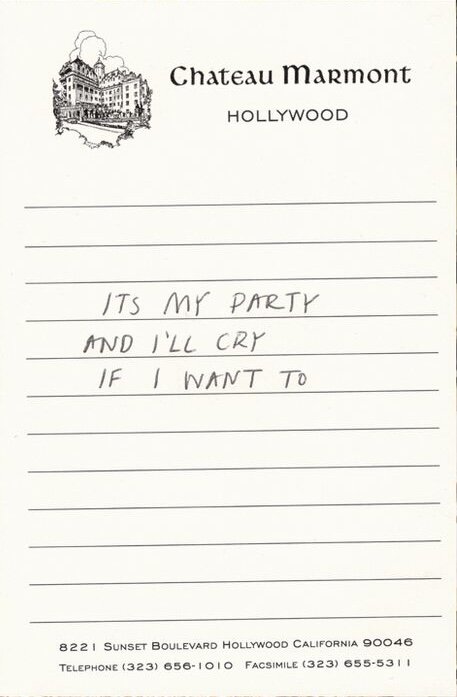 Chateau Marmont
HOLLYWOOD
ITS MY PARTY
AND I'LL CRY
IF I WANT TO
8221 SUNSET BOULEVARD HOLLYWOOD CALIFORNIA 90046
TELEPHONE (323) 656-1010 FACSIMILE (323) 655-5311